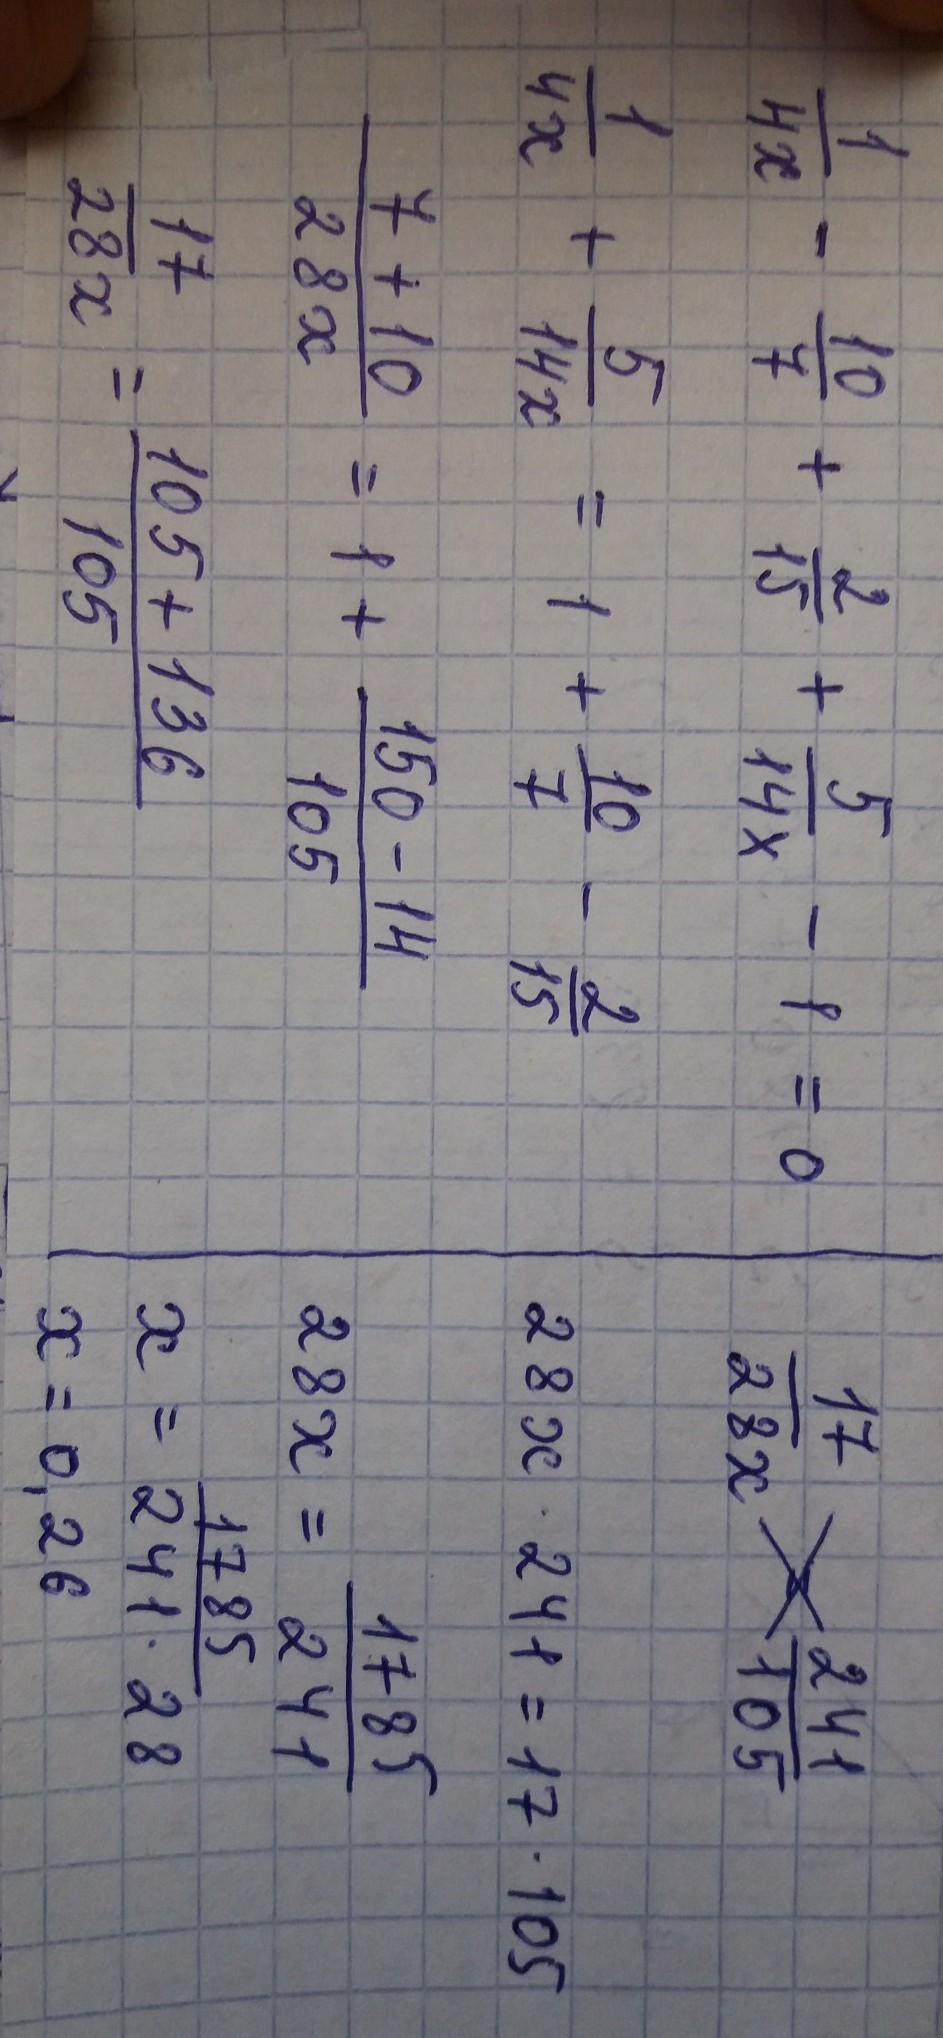 1/4x - 10/7 + 2/15 + 5/14x - 1 = 0
1/4x + 5/14x = 1 + 10/7 - 2/15
7+10/28x = 1 + 150-14/105
17/28x = 105+136/105
17/28x 241/105
28x · 241 = 17 · 105
28x = 1785/241
x = 1785/241·28
x = 0,26